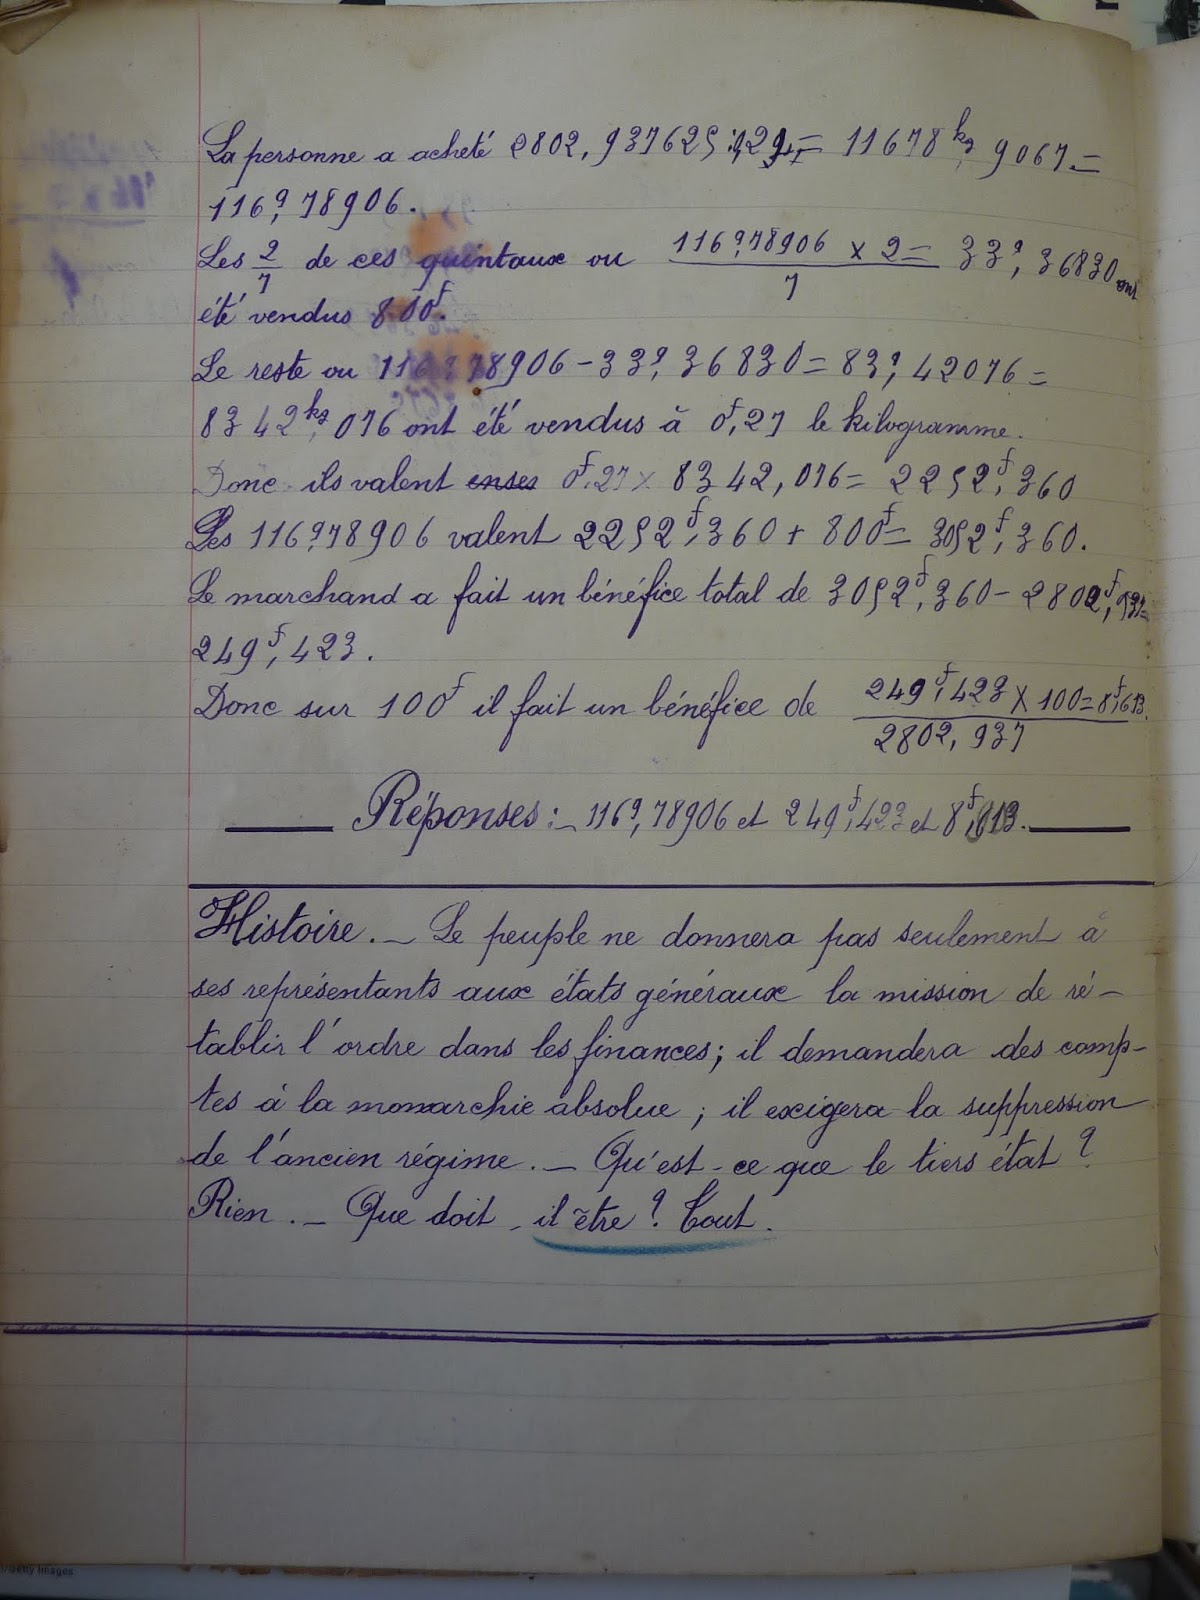 La personne a acheté 2802,937625 : 0,24 = 11678 kg, 9067 =
116 q, 78906.
Les 2/7 de ces quintaux ou 116 q, 78906 × 2 / 7 = 33 q, 36830 ont
été vendus 800 f.
Le reste ou 116 q, 78906 – 33 q, 36830 = 83 q, 42076 =
8342 kg, 076 ont été vendus à 0 f, 27 le kilogramme.
Donc ils valent 0 f, 27 × 8342,076 = 2252 f, 360
Les 116 q, 78906 valent 2252 f, 360 + 800 f = 3052 f, 360.
Le marchand a fait un bénéfice total de 3052 f, 360 – 2802 f, 937 =
249 f, 423.
Donc sur 100 f il fait un bénéfice de 249 f, 423 × 100 / 2802,937 = 8 f, 613.
Réponses : – 116 q, 78906 et 249 f, 423 et 8 f,
Histoire. – Le peuple ne donnera pas seulement à
ses représentants aux états généraux la mission de ré–
tablir l'ordre dans les finances ; il demandera des comp–
tes à la monarchie absolue ; il exigera la suppression
de l'ancien régime. – Qu'est-ce que le tiers état ?
Rien. – Que doit-il être ? Tout.
/Getty Images